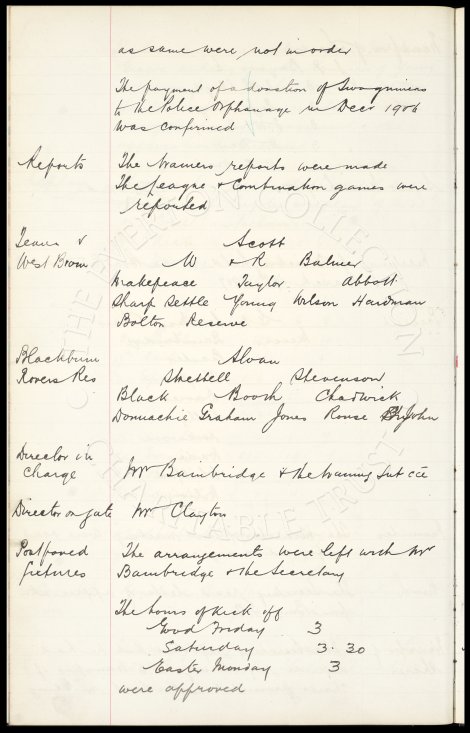 as same were not in order
The payment of a donation of two guineas
to the Police Orphanage in Decr 1906
was confirmed
Reports The Trainers reports were made
The League & Combination games were
reported
Teams v Scott
West Brom W & R Balmer
Makepeace Taylor Abbott
Sharp Settle Young Wilson Hardman
Bolton Reserve
Blackburn Sloan
Rovers Res Strettell Stevenson
Black Booth Chadwick
Donnachie Graham Jones Rouse Birtjohn
Director in
charge Mr Bainbridge & the Training Sub cee
Director on gate Mr Clayton
Postponed The arrangements were left with Mr
fixtures Bainbridge & the Secretary
The hours of kick off
Good Friday 3
Saturday 3.30
Easter Monday 3
were approved
THE EVERTON COLLECTION
CHARITABLE TRUST